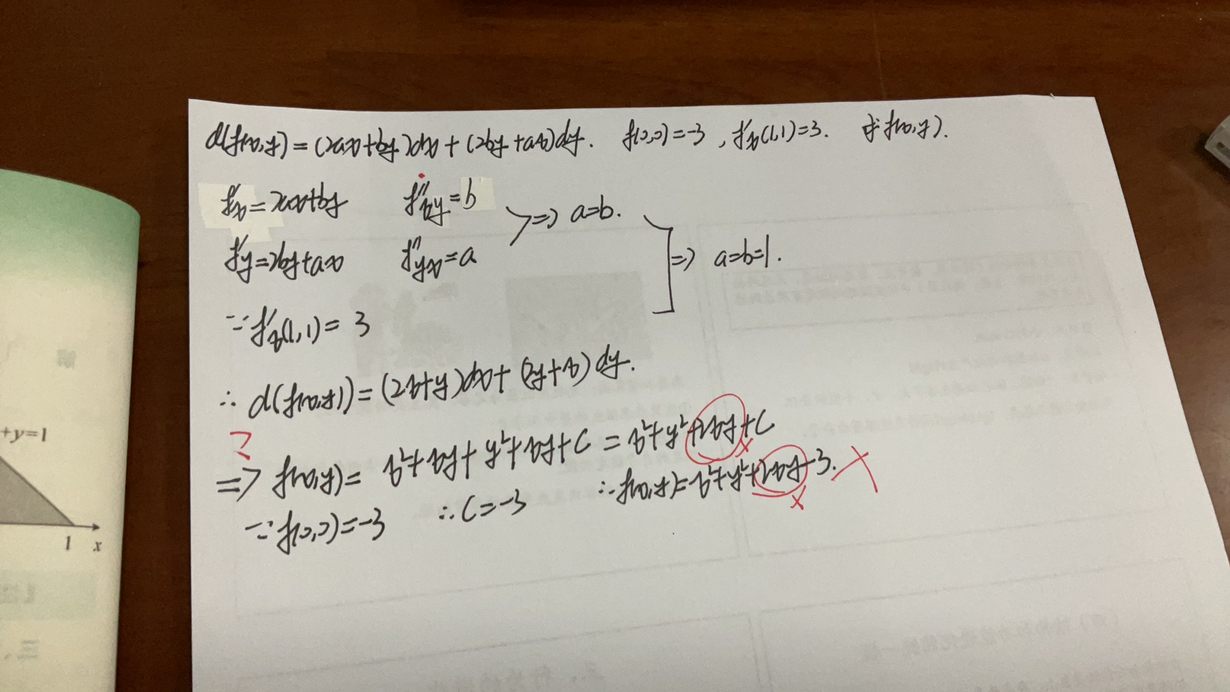 d(f(x,y))=(2ax+by)dx+(2by+ax)dy. f(0,0)=-3, f'x(1,1)=3. 求f(x,y).
f'x=2ax+by f''xy=b
=> a=b.
f'y=2by+ax f''yx=a
=> a=b=1.
∵f'x(1,1)=3
∴ d(f(x,y))=(2x+y)dx+(2y+x)dy.
?
=> f(x,y)= x²+xy+y²+xy+C =x²+y²+2xy+C
x
∵f(0,0)=-3 ∴C=-3 ∴f(x,y)=x²+y²+2xy-3.
x
+y=1
1 x